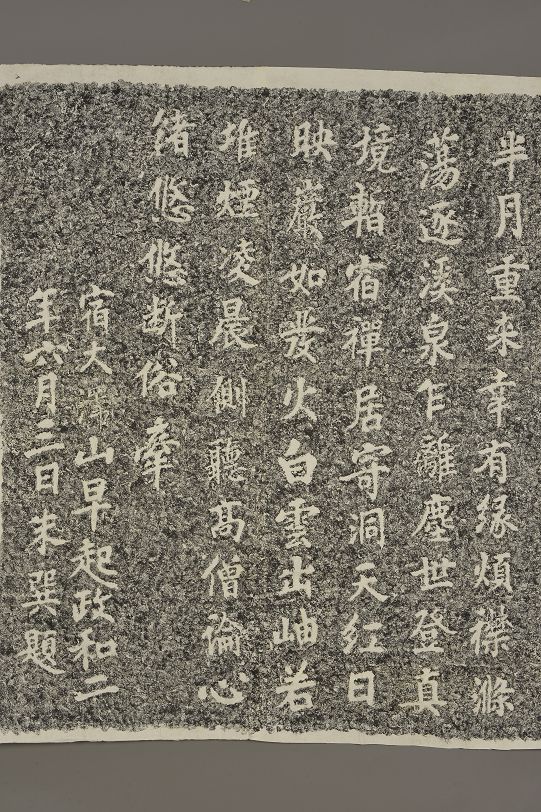 半月重来幸有緣煩襟滌
蕩逐溪泉乍離塵世登真
境暫宿禪居寄洞天紅日
映如發火白雲出岫若
堆煙凌晨側聽高僧論心
緒悠悠断俗牽
宿大山早起政和二
年六月三日巽題